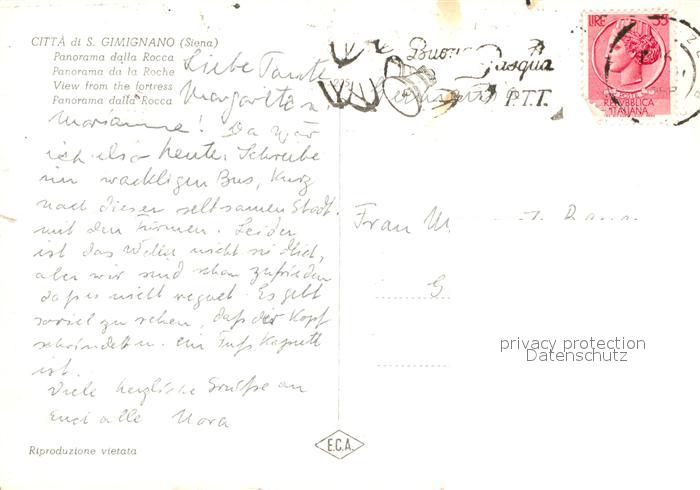 CITTÀ di S. GIMIGNANO (Siena)
Panorama dalla Rocca
Panorama da la Roche
View from the fortress
Panorama dalla Rocca
Liebe Tante
Margarita u.
Marianne! Da war
ich also heute. Schreibe
im wackligen Bus, kurz
nach dieser seltsamen Stadt
mit den Türmen. Leider
ist das Wetter nicht südlich,
aber wir sind schon zufrieden
daß es nicht regnet. Es gibt
soviel zu sehen, daß der Kopf
schwindet u. ein Fuß kaputt
ist.
Viele herzliche Grüße an
Euch alle Nora
Riproduzione vietata
Buona Pasqua
P.T.T.
LIRE 55
REPUBBLICA
ITALIANA
Frau M
G
privacy protection
Datenschutz
E.C.A.